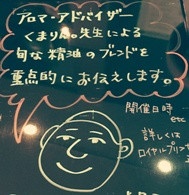 アロマ・アドバイザー
くまりん。先生による
旬な精油のブレンドを
重点的にお伝えします。
開催日時
etc
詳しくは
ロイヤルプリンス